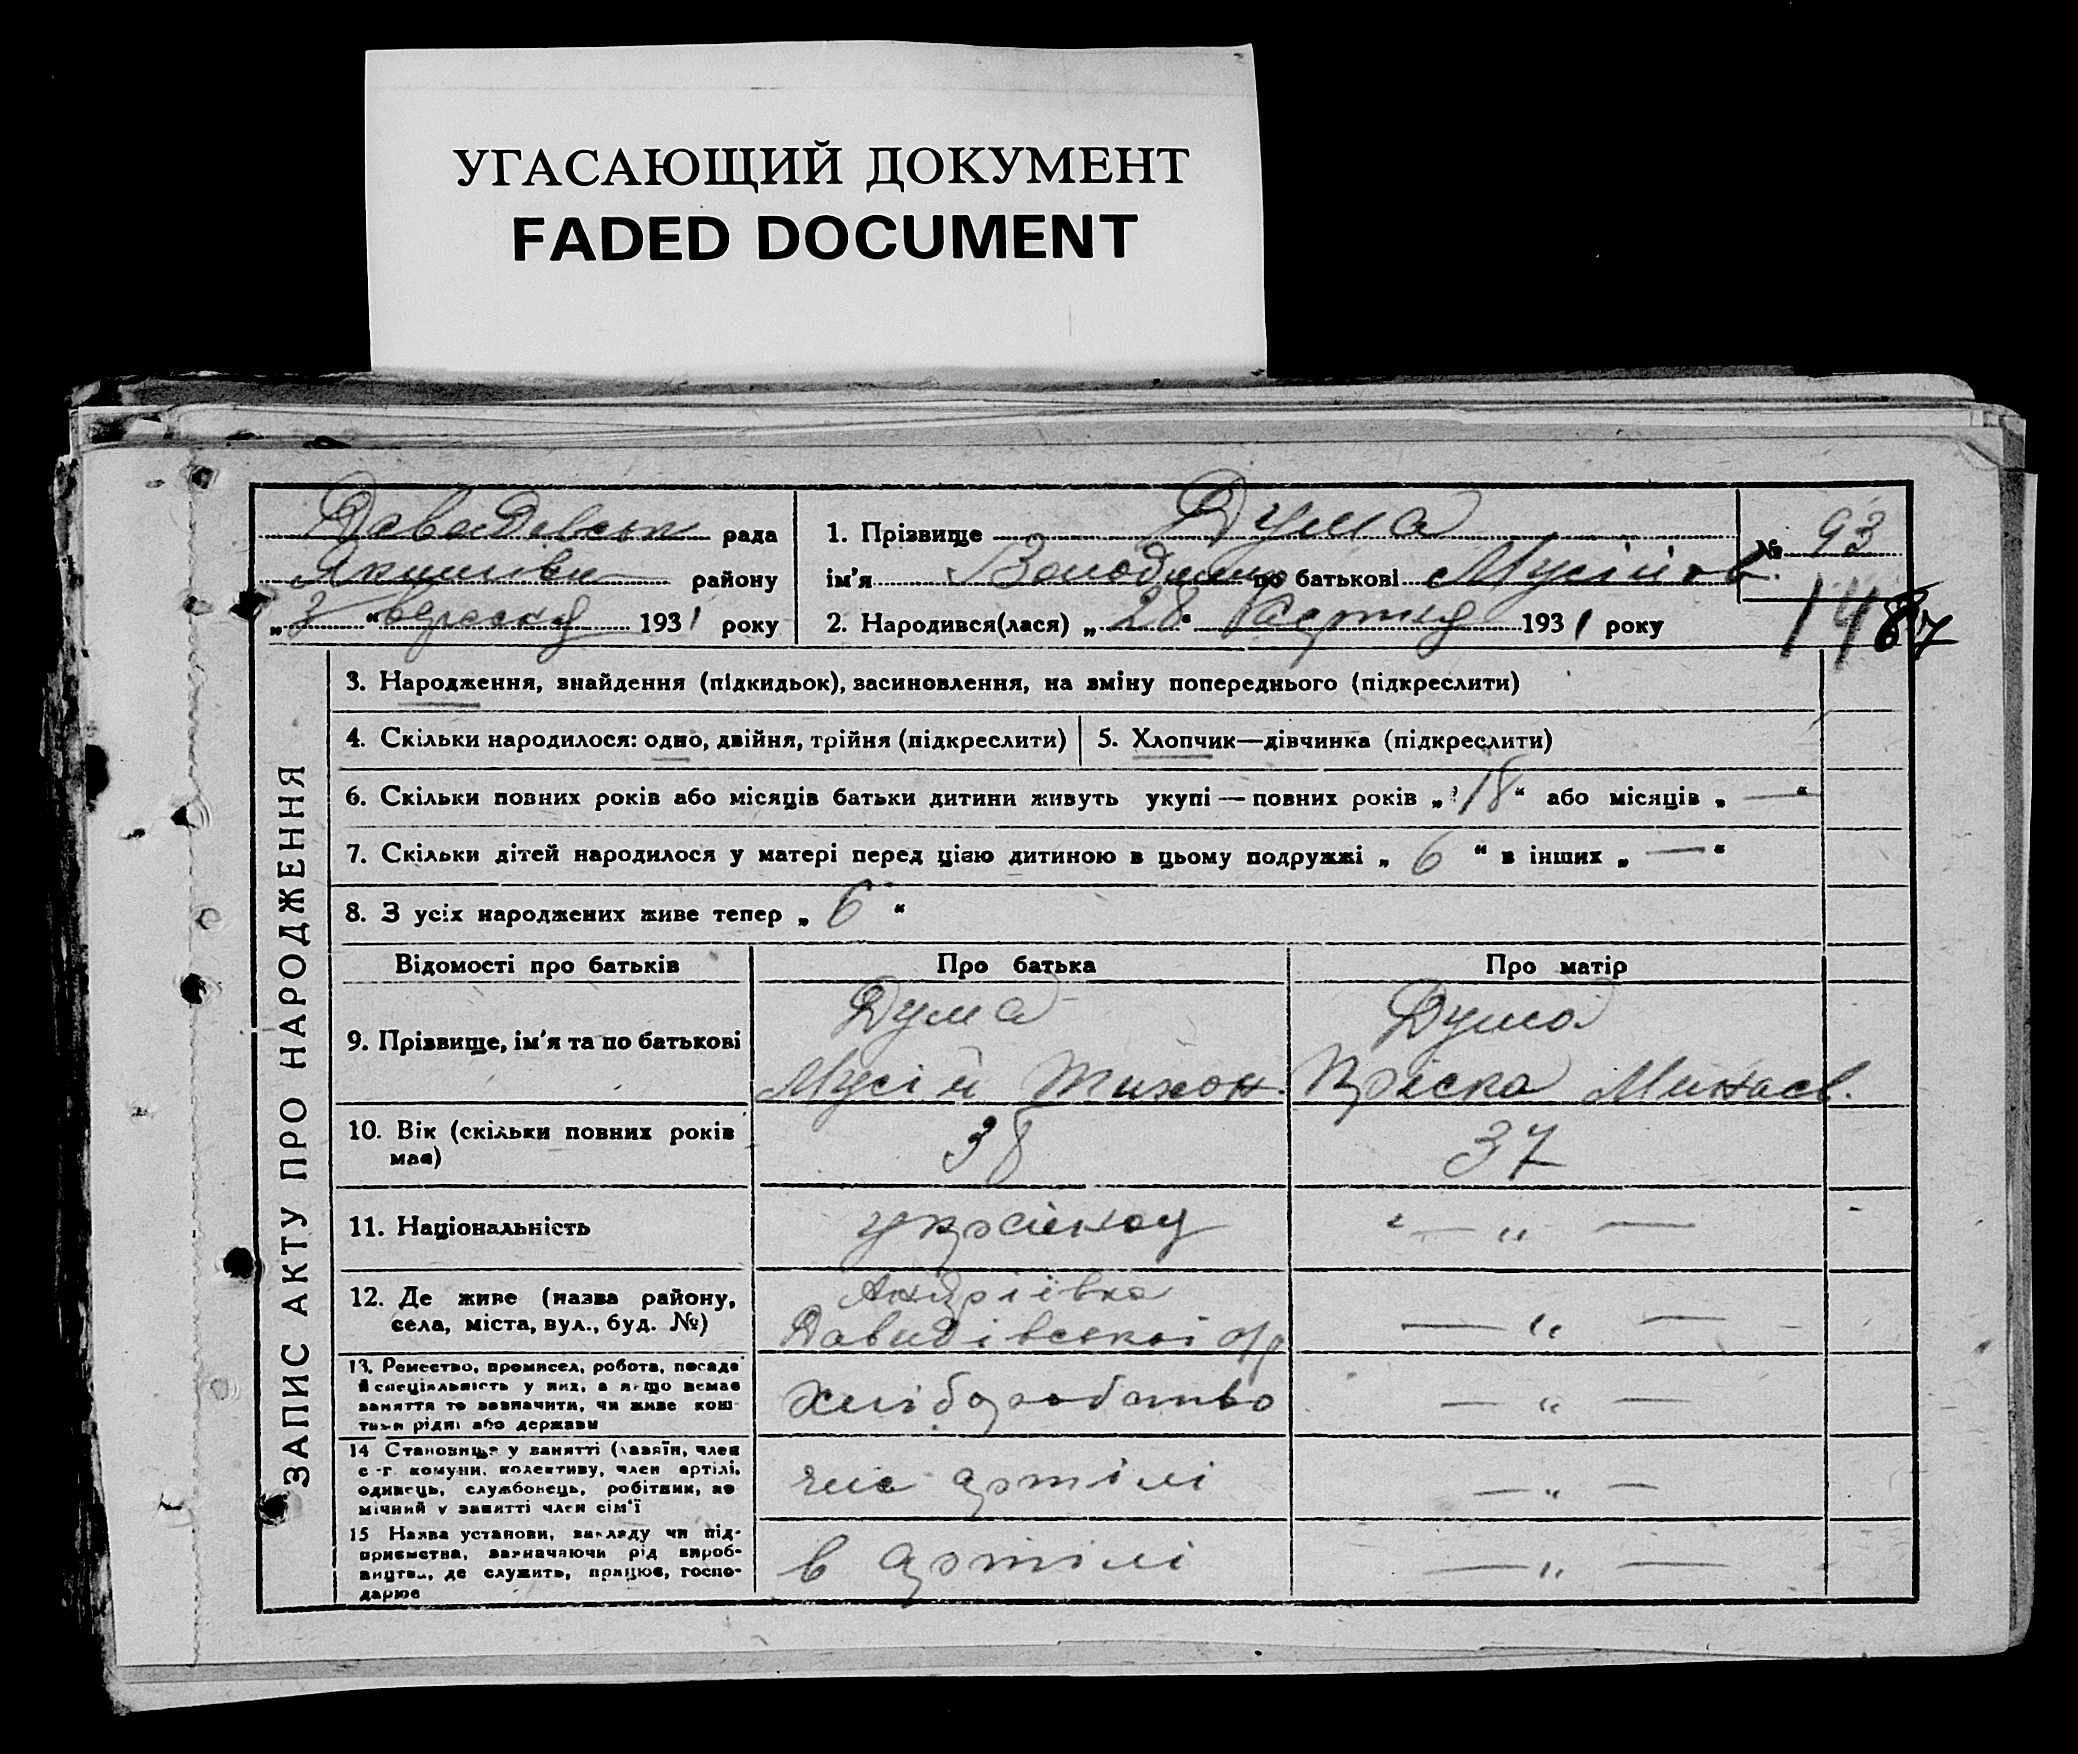 УГАСАЮЩИЙ ДОКУМЕНТ
FADED DOCUMENT
Давидівськ рада
Якимівськ району
„ 3 “ вересня 1931 року
1. Прізвище Дума
ім'я Володимир по батькові Мусійов.
2. Народився(лася) „ 28 “ серпня 1931 року
№ 93
1487
ЗАПИС АКТУ ПРО НАРОДЖЕННЯ
3. Народження, знайдення (підкидьок), засиновлення, на зміну попереднього (підкреслити)
4. Скільки народилося: одно, двійня, трійня (підкреслити)
5. Хлопчик—дівчинка (підкреслити)
6. Скільки повних років або місяців батьки дитини живуть укупі — повних років „ 18 “ або місяців „ — “
7. Скільки дітей народилося у матері перед цією дитиною в цьому подружжі „ 6 “ в інших „ — “
8. З усіх народжених живе тепер „ 6 “
Відомості про батьків
Про батька
Про матір
9. Прізвище, ім'я та по батькові
Дума
Мусій Тихон.
Дума
Пріська Минаєв.
10. Вік (скільки повних років
має)
38
37
11. Національність
українец
— „ —
12. Де живе (назва району,
села, міста, вул., буд. №)
Андріївка
Давидівської с/р
— „ —
13. Ремество, промисел, робота, посада
й спеціяльність у них, а якщо немає
заняття то зазначити, чи живе кош-
тами рідні або держави
Хліборобство
— „ —
14 Становище у занятті (хазяїн, член
с.-г. комуни, колективу, член артілі,
одинець, службовець, робітник, по-
мічний у занятті член сім'ї
член артілі
— „ —
15 Назва установи, закладу чи під-
приємства, зазначаючи рід вироб-
ництва, де служить, працює, госпо-
дарює
в артілі
— „ —